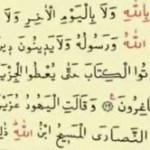 بِاللَّهِ وَلَا بِالْيَوْمِ الْآخِرِ وَلَا
اللَّهُ وَرَسُولُهُ وَلَا يَدِينُونَ دِينَ
تُوا الْكِتَابَ حَتَّى يُعْطُوا الْجِزْيَةَ
صَاغِرُونَ ﴿٢٩﴾ وَقَالَتِ الْيَهُودُ عُزَيْرٌ
النَّصَارَى الْمَسِيحُ ابْنُ اللَّهِ ذَلِكَ